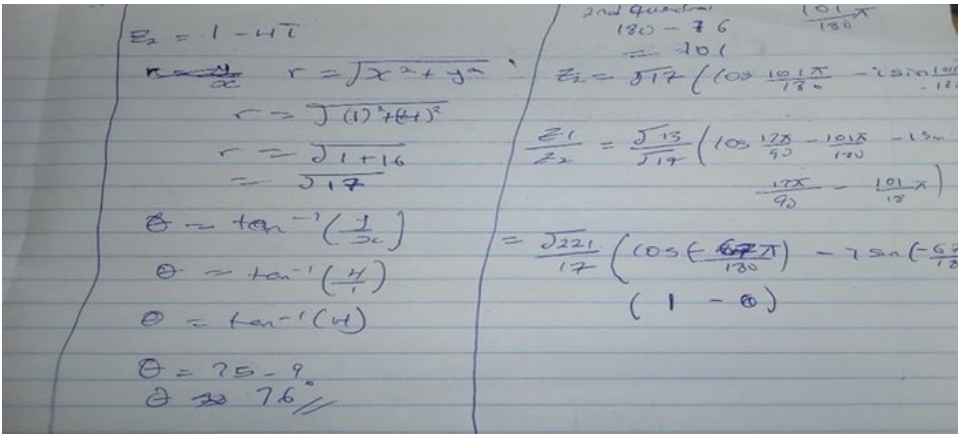 z₂ = 1 - 4i
r = √x² + y²
r = √(1)² + (4)²
r = √1 + 16
= √17
θ = tan⁻¹(y/x)
θ = tan⁻¹(4/1)
θ = tan⁻¹(4)
θ = 75.9
θ ≈ 76°
2nd
180 - 76
= 101
101π/180
z₂ = √17 (cos 101π/180 - i sin 101
z₁/z₂ = √13/√17 (cos 17π/90 - 101π/180 - i sin
17π/90 - 101/18 π)
= √221/17 (cos(-67π/180) - i sin(-67
(1 - 0)